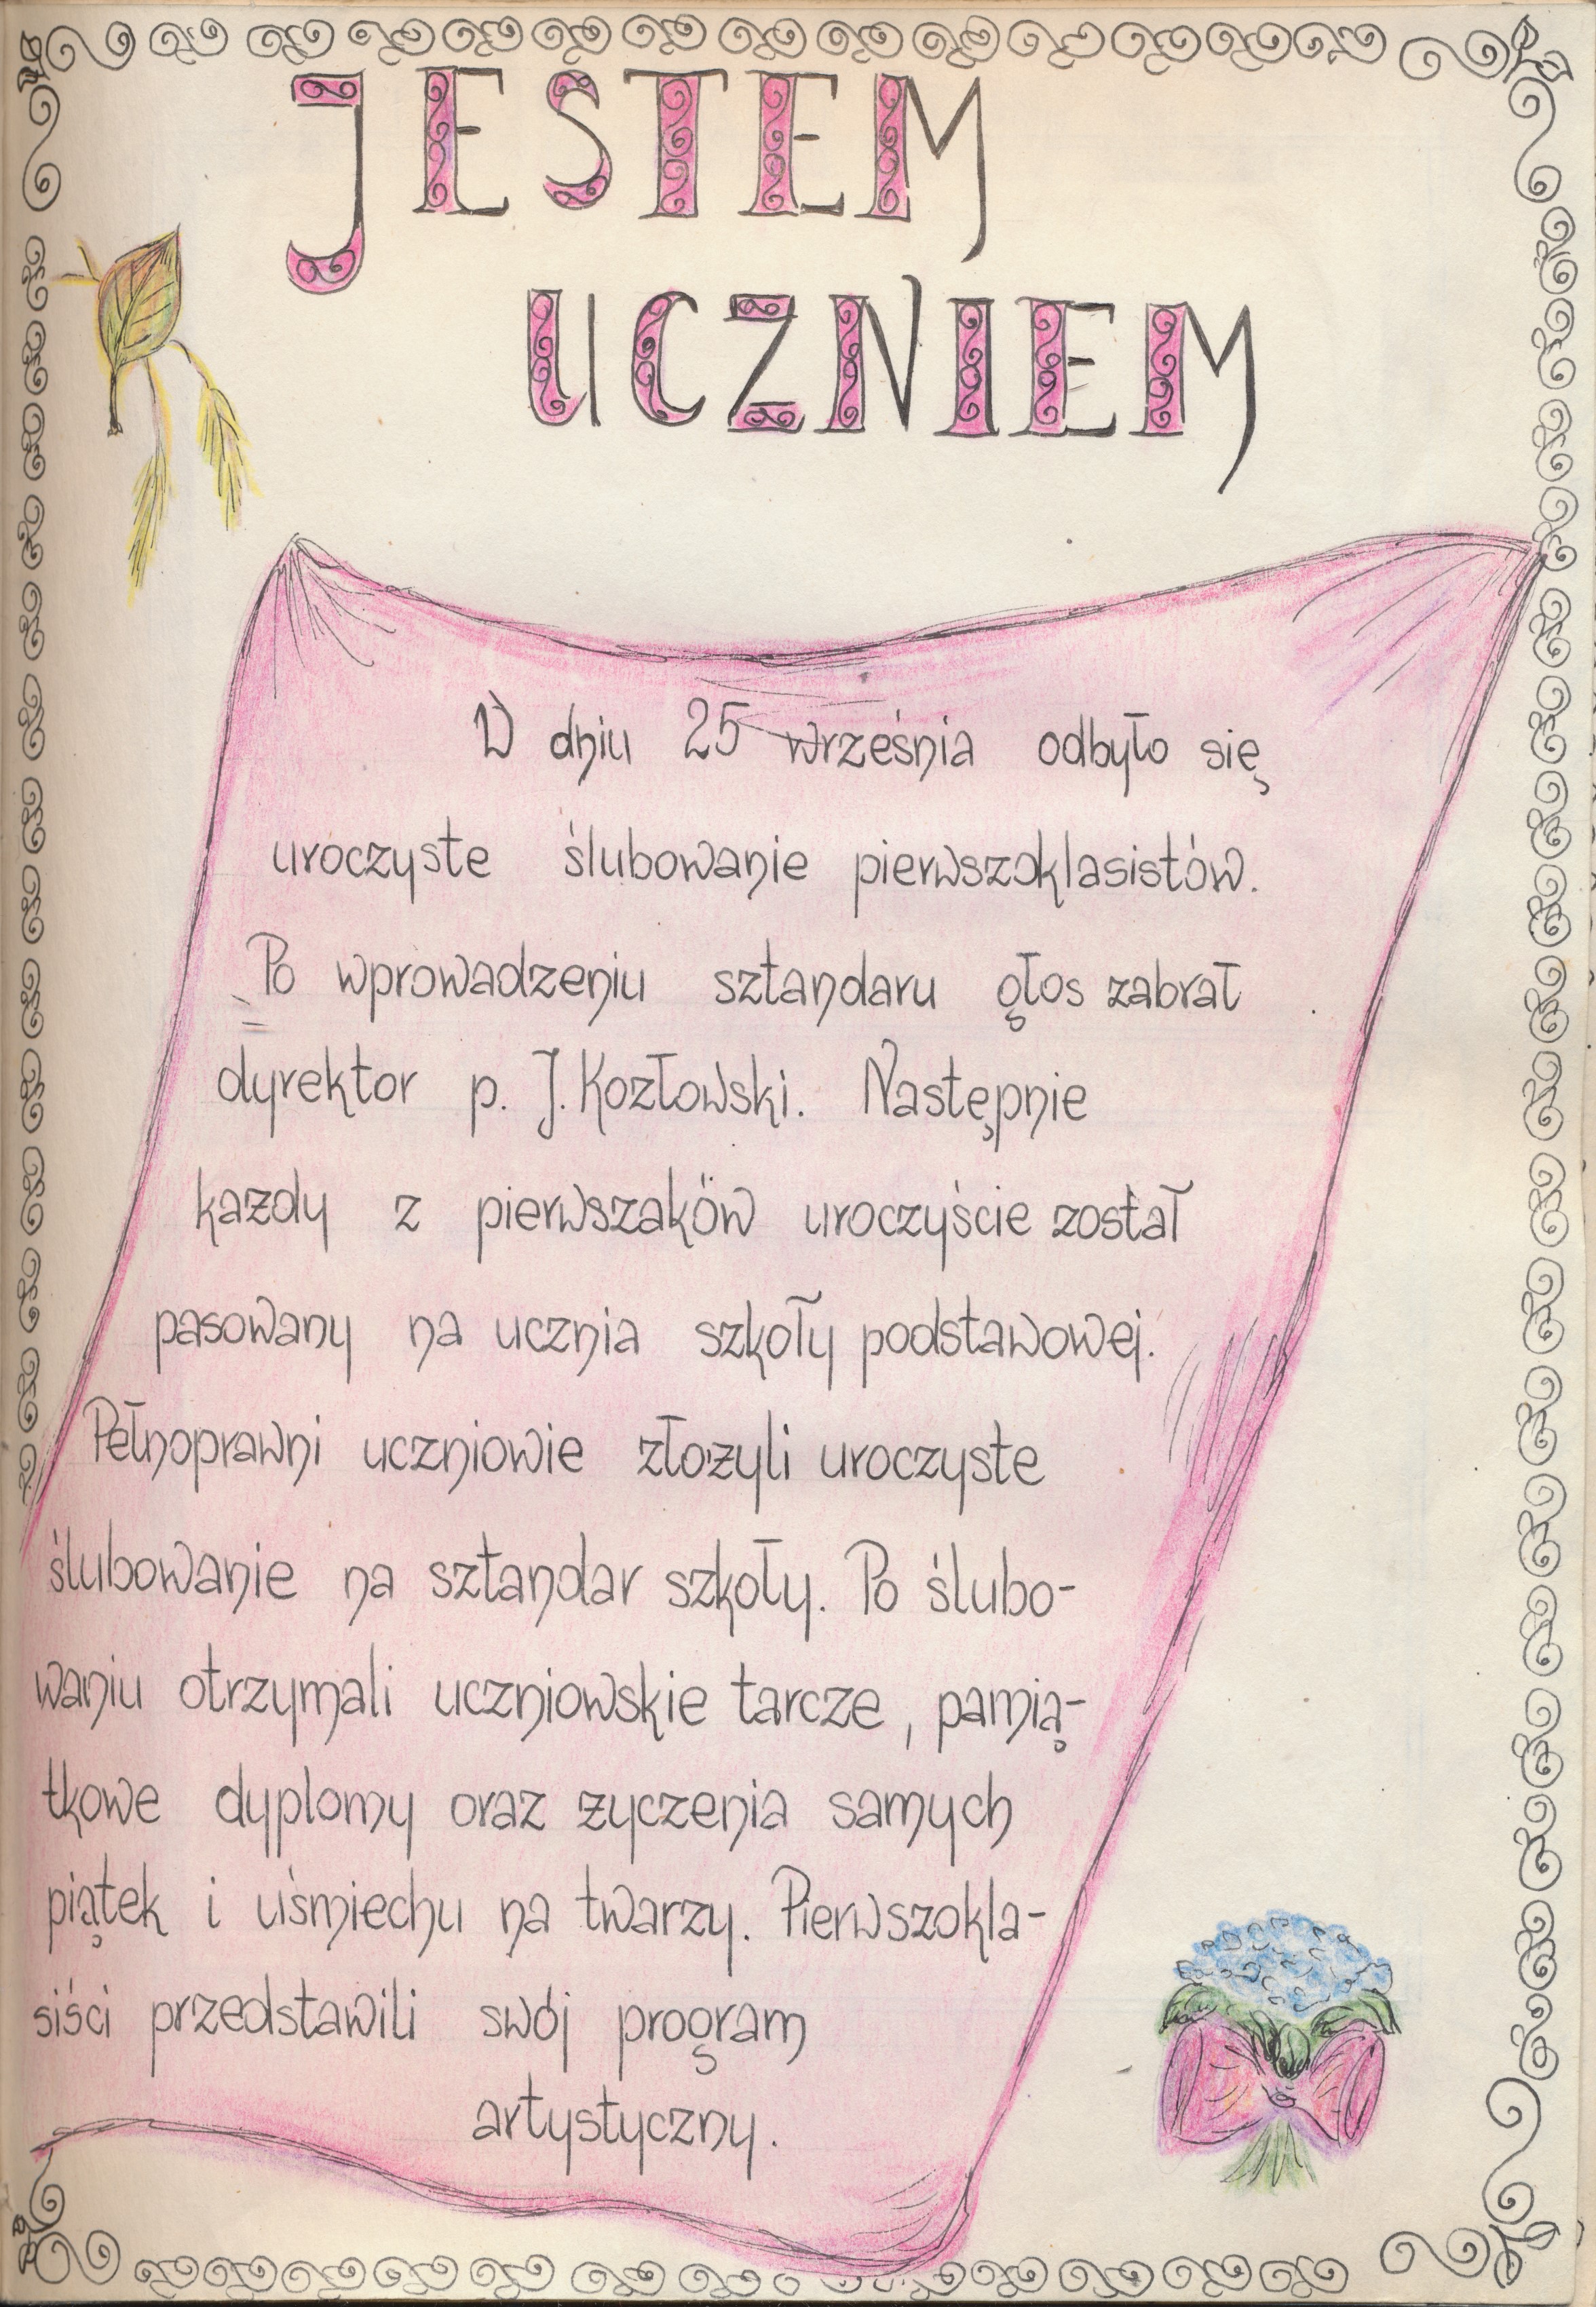 JESTEM
UCZNIEM
W dniu 25 września odbyło się
uroczyste ślubowanie pierwszoklasistów.
Po wprowadzeniu sztandaru głos zabrał
dyrektor p. J. Kozłowski. Następnie
każdy z pierwszaków uroczyście został
pasowany na ucznia szkoły podstawowej.
Pełnoprawni uczniowie złożyli uroczyste
ślubowanie na sztandar szkoły. Po ślubo-
waniu otrzymali uczniowskie tarcze, pamią-
tkowe dyplomy oraz życzenia samych
piątek i uśmiechu na twarzy. Pierwszokla-
siści przedstawili swój program
artystyczny.